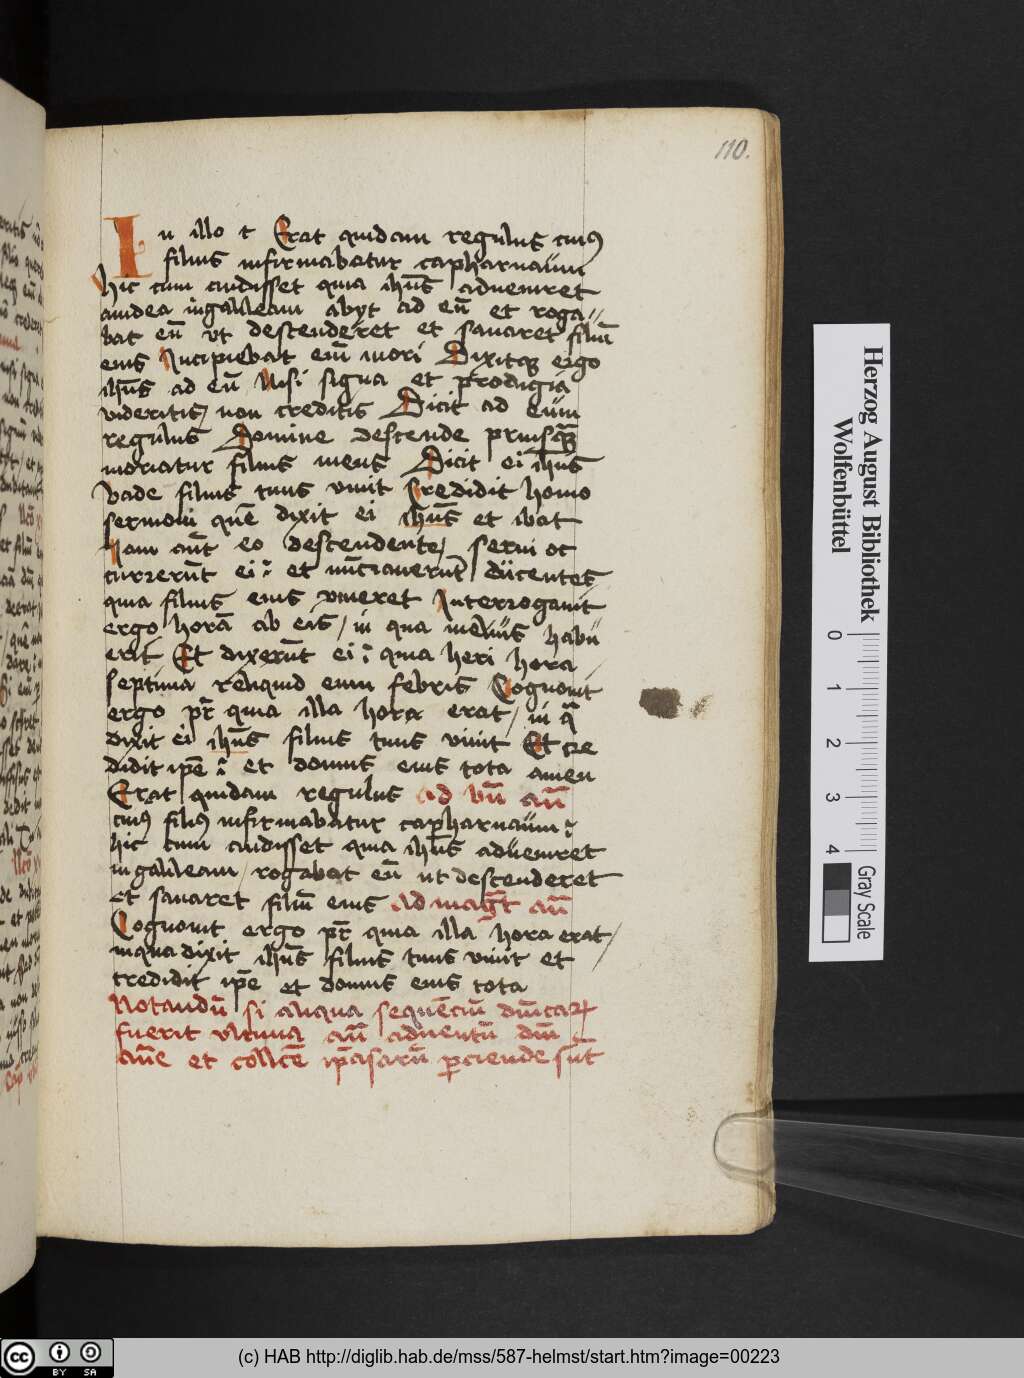 110.
In illo t Erat quidam regulus cuiꝰ
filius infirmabatur capharnaum
hic cum audisset quia ihūs adueniret
audea in galileam abyt ad eū et roga
bat eū vt descenderet et sanaret filiū
eius Incipiebat eī mori Dixitqꝫ ergo
ihūs ad eū Nisi signa et prodigia
videritis / non creditis Dicit ad eum
regulus Domine descende priusqꝫ
moriatur filius meus Dicit ei ihūs
vade filius tuus viuit Credidit homo
sermoni quē dixit ei ihūs et ibat
Iam aūt eo descendente / serui oc
currerūt ei : et nūctiauerūt dicentes
quia filius eius viueret Interrogauit
ergo horā ab eis / in qua melius habu
erit Et dixerūt ei : quia heri hora
septima reliquid eum febris Cognouit
ergo pr̄ quia illa hora erat / in q̄
dixit ei ihūs filius tuus viuit Et cre
didit ipē : et domus eius tota amen
Erat quidam regulus ad bn̄ an̄
cuiꝰ filiꝰ infirmabatur capharnaum :
hic cum audisset quia ihūs adueniret
in galileam / rogabat eū ut descenderet
et sanaret filiū eius ad mag̅t an̄
Cognouit ergo pr̄ quia illa hora erat /
in qua dixit ihūs filius tuus viuit et
credidit ipē et domus eius tota
Notandū si aliqua sequēciū dn̄icarꝝ
fuerit vltima an̄ aduentū dn̄i
an̄e et collcē ip̄asarū ꝑciende sūt
Herzog August Bibliothek
Wolfenbüttel
0 1 2 3 4
Gray Scale
cc BY SA
(c) HAB http://diglib.hab.de/mss/587-helmst/start.htm?image=00223